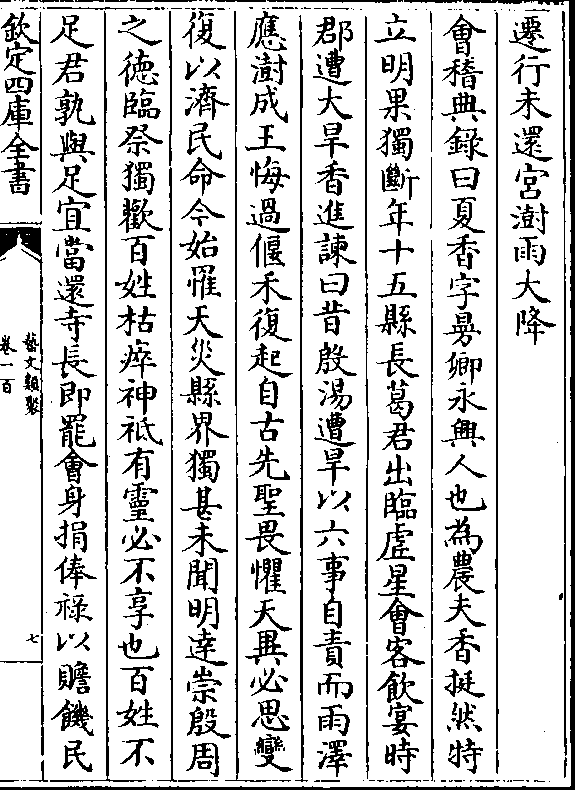 遷行未還宫澍雨大降
會稽典録曰夏香字曼卿永興人也為農夫香挺然特
立明果獨斷年十五縣長葛君出臨虚星會客飲宴時
郡遭大旱香進諫曰昔殷湯遭旱以六事自責而雨澤
應澍成王悔過偃禾復起自古先聖畏懼天異必思變
復以濟民命今始罹天災縣界獨甚未聞明達崇殷周
之徳臨祭獨歡百姓枯瘁神祇有靈必不享也百姓不
足君孰與足宜當還寺長即罷會身捐俸禄以贍饑民
欽定四庫全書
藝文類聚
卷一百
七